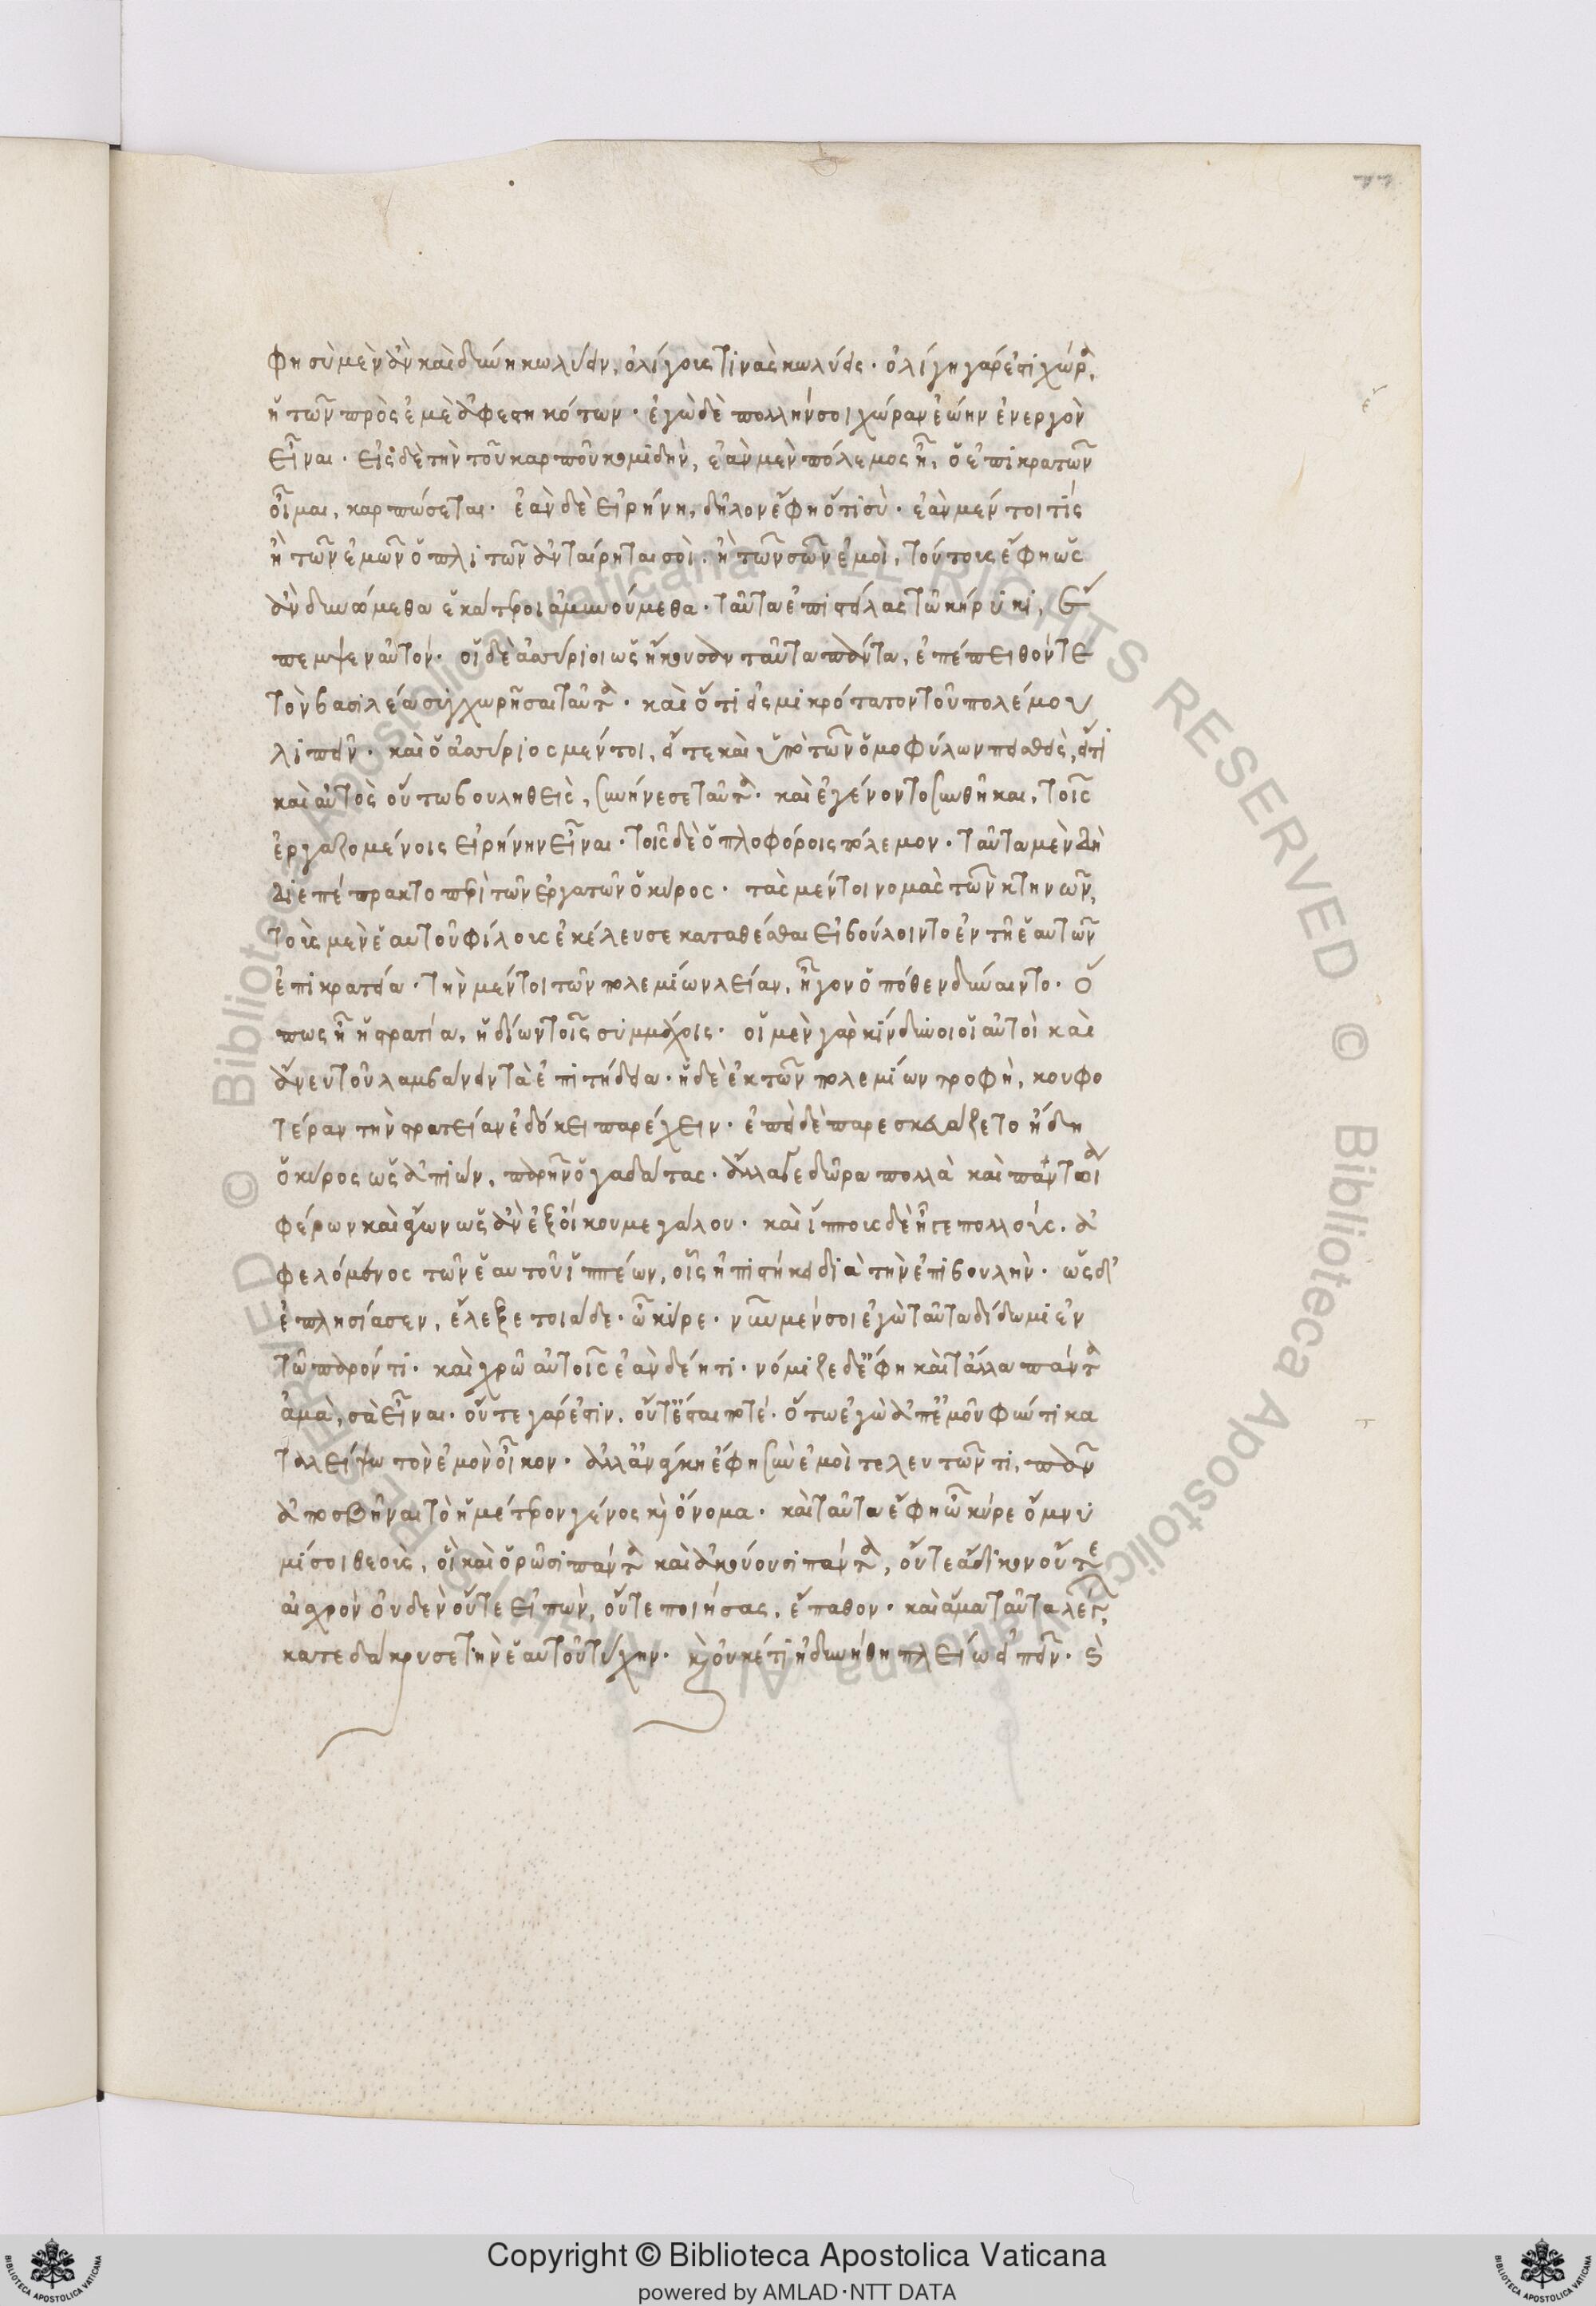 φη σὺ μὲν ἂν καὶ δύνῃ κωλύειν, ὀλίγοις τινὰς κωλύεις· ὀλίγη γάρ ἐστι χώρα,
ἡ τῶν πρὸς ἐμὲ ἀφεστηκότων· ἐγὼ δὲ πολλήν σοι χώραν ἐῴην ἐνεργὸν
εἶναι· εἰς δὲ τὴν τοῦ καρποῦ κομιδὴν, ἐὰν μὲν πόλεμος ᾖ, ὁ ἐπικρατῶν
οἶμαι, καρπώσεται· ἐὰν δὲ εἰρήνη, δῆλον ἔφη ὅτι σὺ· ἐὰν μέν τοι τίς
ἢ τῶν ἐμῶν ὁπλιτῶν ἀνταίρηται σοὶ, ἢ τῶν σῶν ἐμοὶ, τούτοις ἔφη ὡς
ἂν δυνώμεθα ἑκάτεροι ἀμυνούμεθα· ταῦτα ἐπιστείλας τῷ κήρυκι, ἔ
πεμψεν αὐτόν· οἱ δὲ ἀσσύριοι ὡς ἤκουσαν ταῦτα πάντα, ἐπέπειθόν τε
τὸν βασιλέα συγχωρῆσαι ταῦτα· καὶ ὅτι εἰς μικρότατον τοῦ πολέμου
λιπεῖν· καὶ ὁ ἀσσύριος μέντοι, εἴτε καὶ ὑπὸ τῶν ὁμοφύλων πεισθεὶς, εἴτε
καὶ αὐτὸς οὕτω βουληθεὶς, συνήνεσε ταῦτα· καὶ ἐγένοντο συνθῆκαι, τοῖς
ἐργαζομένοις εἰρήνην εἶναι· τοῖς δὲ ὁπλοφόροις πόλεμον· ταῦτα μὲν δὴ
διεπέπρακτο περὶ τῶν ἐργατῶν ὁ κῦρος· τὰς μέντοι νομὰς τῶν κτηνῶν,
τοὶς μὲν ἑαυτοῦ φίλοις ἐκέλευσε καταθέσθαι εἰ βούλοιντο ἐν τῇ ἑαυτῶν
ἐπικρατεία· τὴν μέντοι τῶν πολεμίων λείαν, ἦγον ὁπόθεν δύναιντο· ὅ
πως ᾖ ἡ στρατία, ἡδίων τοῖς συμμάχοις· οἱ μὲν γὰρ κίνδυνοι οἱ αὐτοὶ καὶ
ἄνευ τοῦ λαμβάνειν τὰ ἐπιτήδεια· ἡ δὲ ἐκ τῶν πολεμίων τροφὴ, κουφο
τέραν τὴν στρατείαν ἐδόκει παρέχειν· ἐπεὶ δὲ παρεσκευάζετο ἤδη
ὁ κῦρος ὡς ἀπιών, παρῆν ὁ γαδάτας· ἄλλα τε δῶρα πολλὰ καὶ παντοῖα
φέρων καὶ ἄγων ὡς ἂν ἐξ οἴκου μεγάλου· καὶ ἵππους δὲ ἦγε πολλούς. ἀ
φελόμενος τῶν ἑαυτοῦ ἱππέων, οἷς ἠπιστήκει διὰ τὴν ἐπιβουλὴν· ὡς δ'
ἐπλησίασεν, ἔλεξε τοιάδε· ὦ κῦρε· νῦν μέν σοι ἐγὼ ταῦτα δίδωμι ἐν
τῷ παρόντι· καὶ χρῶ αὐτοῖς ἐὰν δέῃ τι· νόμιζε δ' ἔφη καὶ τἄλλα πάντα
ἀμὰ, σὰ εἶναι· οὔτε γάρ ἐστιν, οὔτ' ἔσται ποτέ· ὅτω ἐγὼ ἀπ' ἐμοῦ φύντι κα
ταλείψω τὸν ἐμὸν οἶκον· ἀλλ' ἀνάγκη ἔφη σὺν ἐμοὶ τελευτῶντι, πᾶν
ἀποσβῆναι τὸ ἡμέτερον γένος κὶ ὄνομα· καὶ ταῦτα ἔφη ὦ κύρε ὄμνυ
μί σοι θεοὺς, οἳ καὶ ὁρῶσι πάντα καὶ ἀκούουσι πάντα, οὔτε ἄδικον οὔτε
αἰσχρὸν οὐδὲν οὔτε εἰπὼν, οὔτε ποιήσας, ἔπαθον· καὶ ἅμα ταῦτα λέγων,
κατεδάκρυσε τὴν ἑαυτοῦ τύχην· κὶ οὐκέτι ἠδυνήθη πλείω εἰπεῖν· ϛ